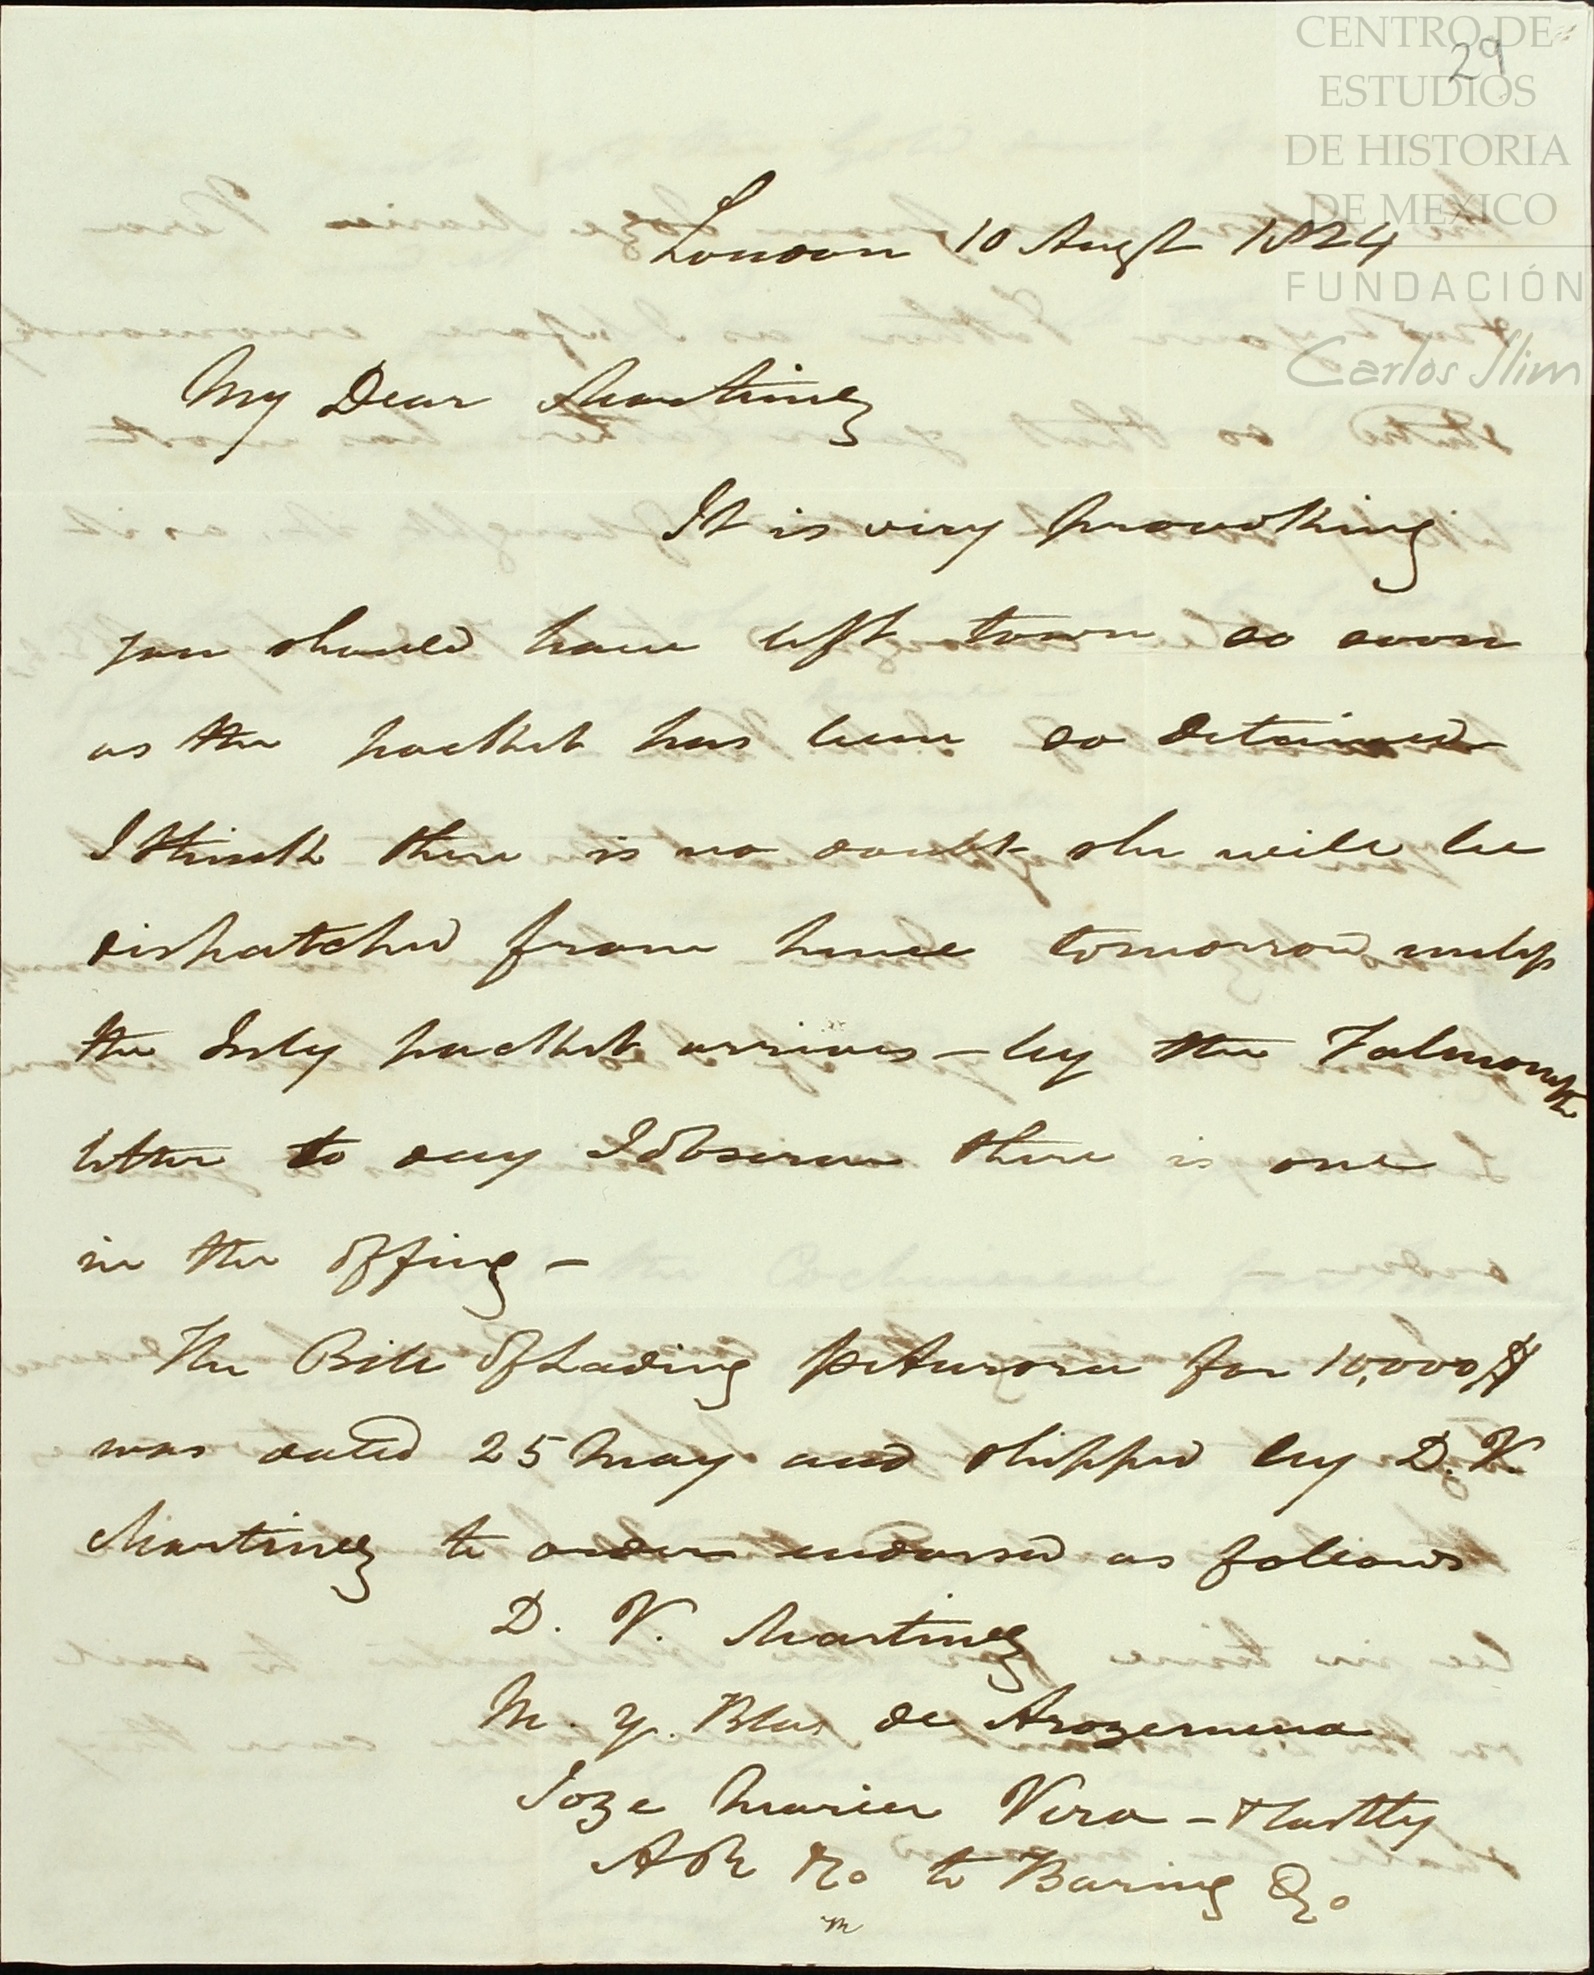 CENTRO DE
ESTUDIOS
DE HISTORIA
DE MEXICO
FUNDACIÓN
Carlos Slim
29
London 10 Augt 1824
My Dear Martinez
It is very provoking
you should have left town so soon
as the packet has been so detained
I think there is no doubt she will be
dispatched from hence tomorrow unless
the July packet arrives - by the Falmouth
letter to day I observe there is one
in the offing -
The Bill of Lading p Aurora for 10,000 $
was dated 25 May and shipped by D. V.
Martinez to order endorsed as follows
D. V. Martinez
M. y. Blas de Arozemena
Joze Maria Vera - & lastly
to Baring & Co